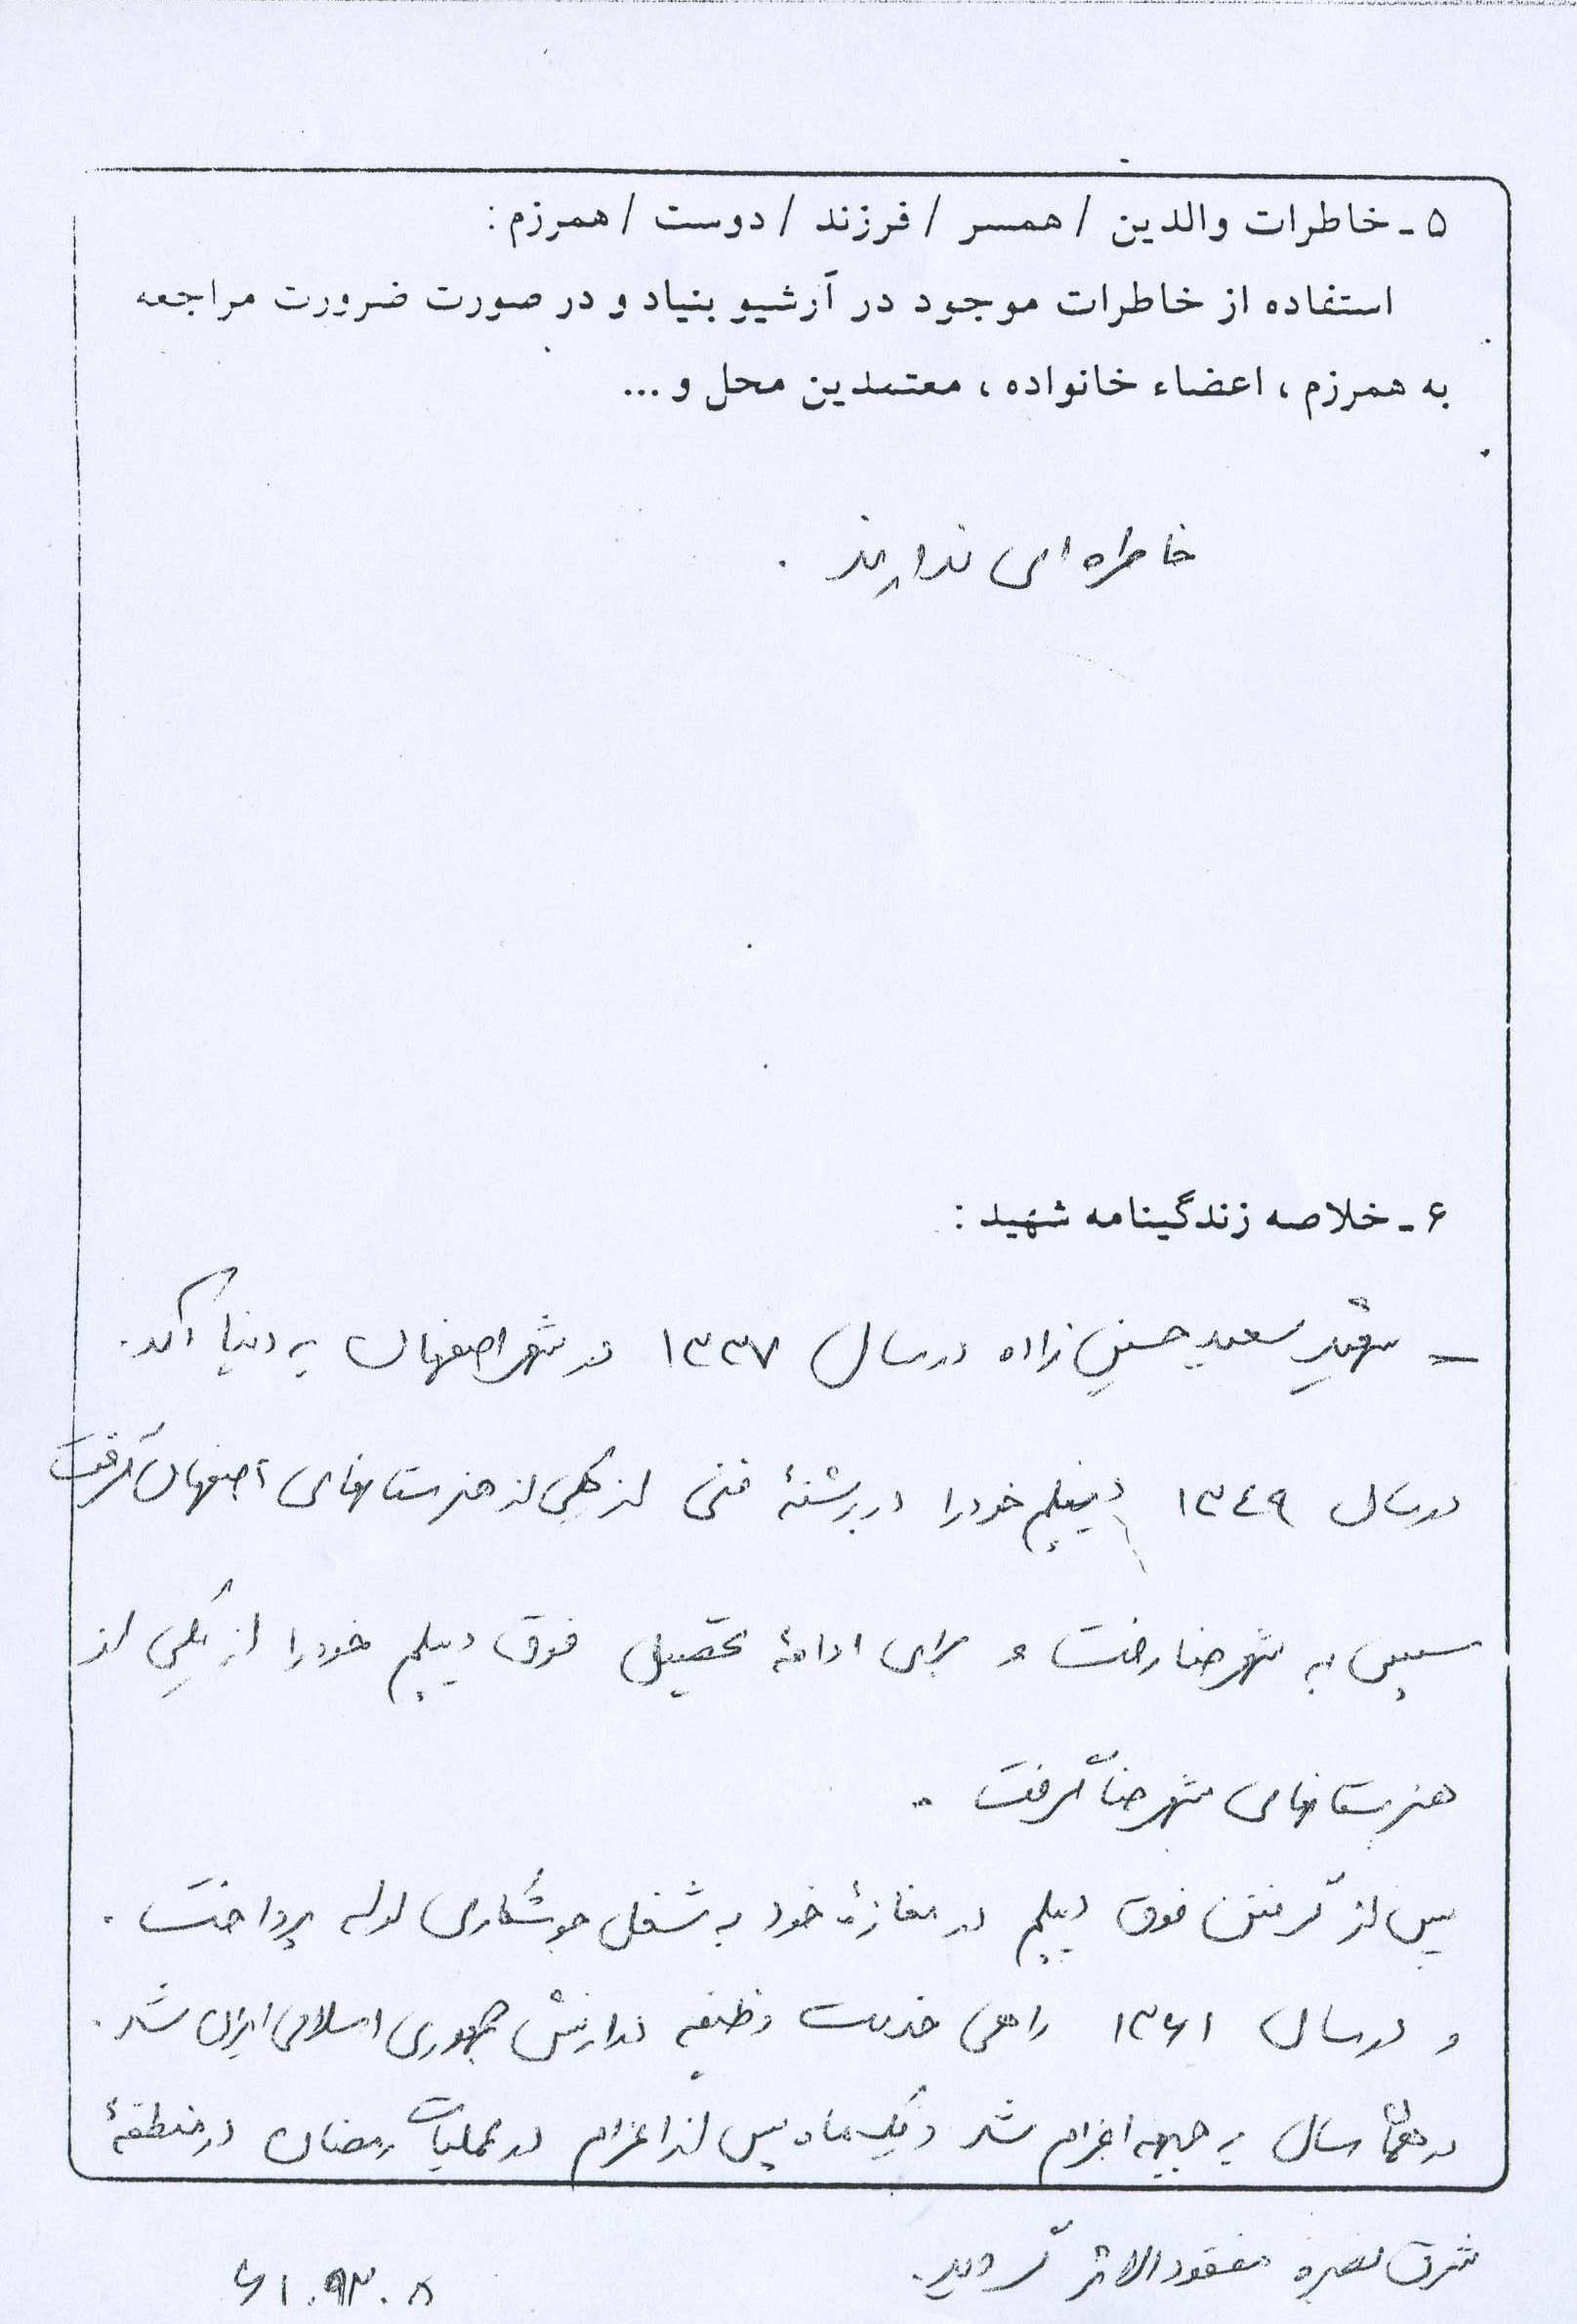 ۵ ـ خاطرات والدین / همسر / فرزند / دوست / همرزم :
استفاده از خاطرات موجود در آرشیو بنیاد و در صورت ضرورت مراجعه
به همرزم ، اعضاء خانواده ، معتمدین محل و ...
خاطره ای ندارند .
۶ ـ خلاصه زندگینامه شهید :
ـ شهید سعید حسین زاده در سال ۱۳۳۷ در شهر اصفهان به دنیا آمد .
در سال ۱۳۴۹ دیپلم خود را در رشتهٔ فنی از یکی از هنرستانهای اصفهان گرفت
سپس به شهرضا رفت و برای ادامهٔ تحصیل فوق دیپلم خود را از یکی از
هنرستانهای شهرضا گرفت .
پس از گرفتن فوق دیپلم در مغازهٔ خود به شغل جوشکاری لوله پرداخت .
و در سال ۱۳۶۱ راهی خدمت وظیفه در ارتش جمهوری اسلامی ایران شد .
در همان سال به جبهه اعزام شد و یک ماه پس از اعزام در عملیات رمضان در منطقهٔ
شرق بصره مفقودالاثر گردید .